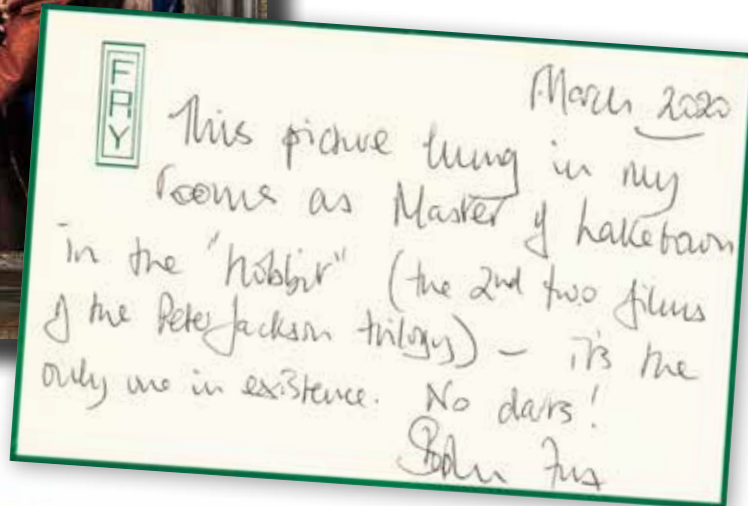 FRY
March 2020
This picture hung in my
rooms as Master of Laketown
in the "hobbit" (the 2nd two films
of the Peter Jackson trilogy) – it's the
only one in existence. No
Stephen Fry